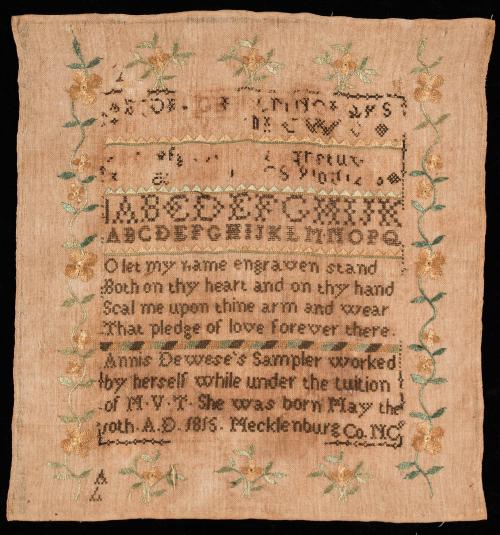 ABCDEFGHIJK
ABCDEFGHIJKLMNOPQ
O let my name engraven stand
Both on thy heart and on thy hand
Seal me upon thine arm and wear
That pledge of love forever there.
Annis Dewese's Sampler worked
by herself while under the tuition
of M. V. T. She was born May the
10th. A.D. 1815. Mecklenburg Co. N.C
A
L